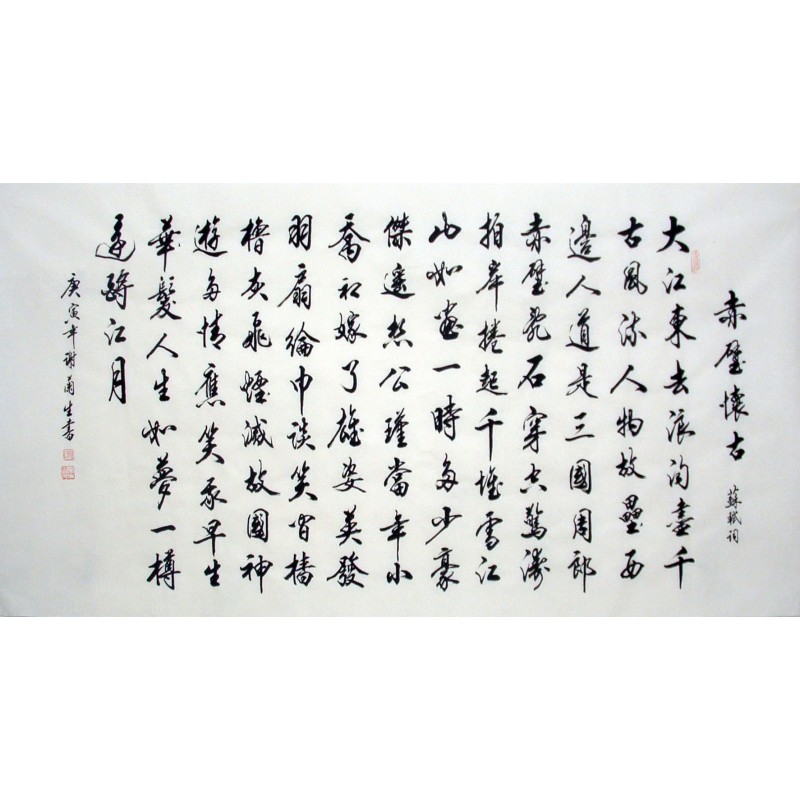 赤壁懷古 蘇軾詞
大江東去浪淘盡千
古風流人物故壘西
邊人道是三國周郎
赤壁亂石穿空驚濤
拍岸捲起千堆雪江
山如畫一時多少豪
傑遙想公瑾當年小
喬初嫁了雄姿英發
羽扇綸巾談笑間檣
櫓灰飛煙滅故國神
遊多情應笑我早生
華髮人生如夢一樽
還酹江月
庚寅年謝蘭生書